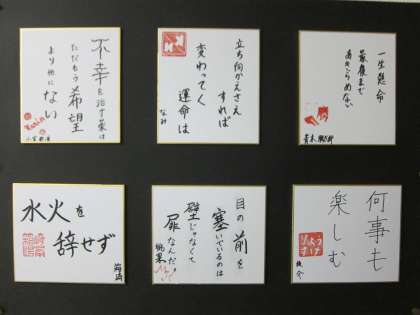 不幸を治す薬は
ただもう希望
より他に
ない
立ち向かえさえ
すれば
変わってく
運命は
なみ
一生懸命
最後まで
あきらめない
水火を
辞せず
目の前を
塞いでいるのは
壁じゃなくて
扉なんだ!
何事も
楽しむ